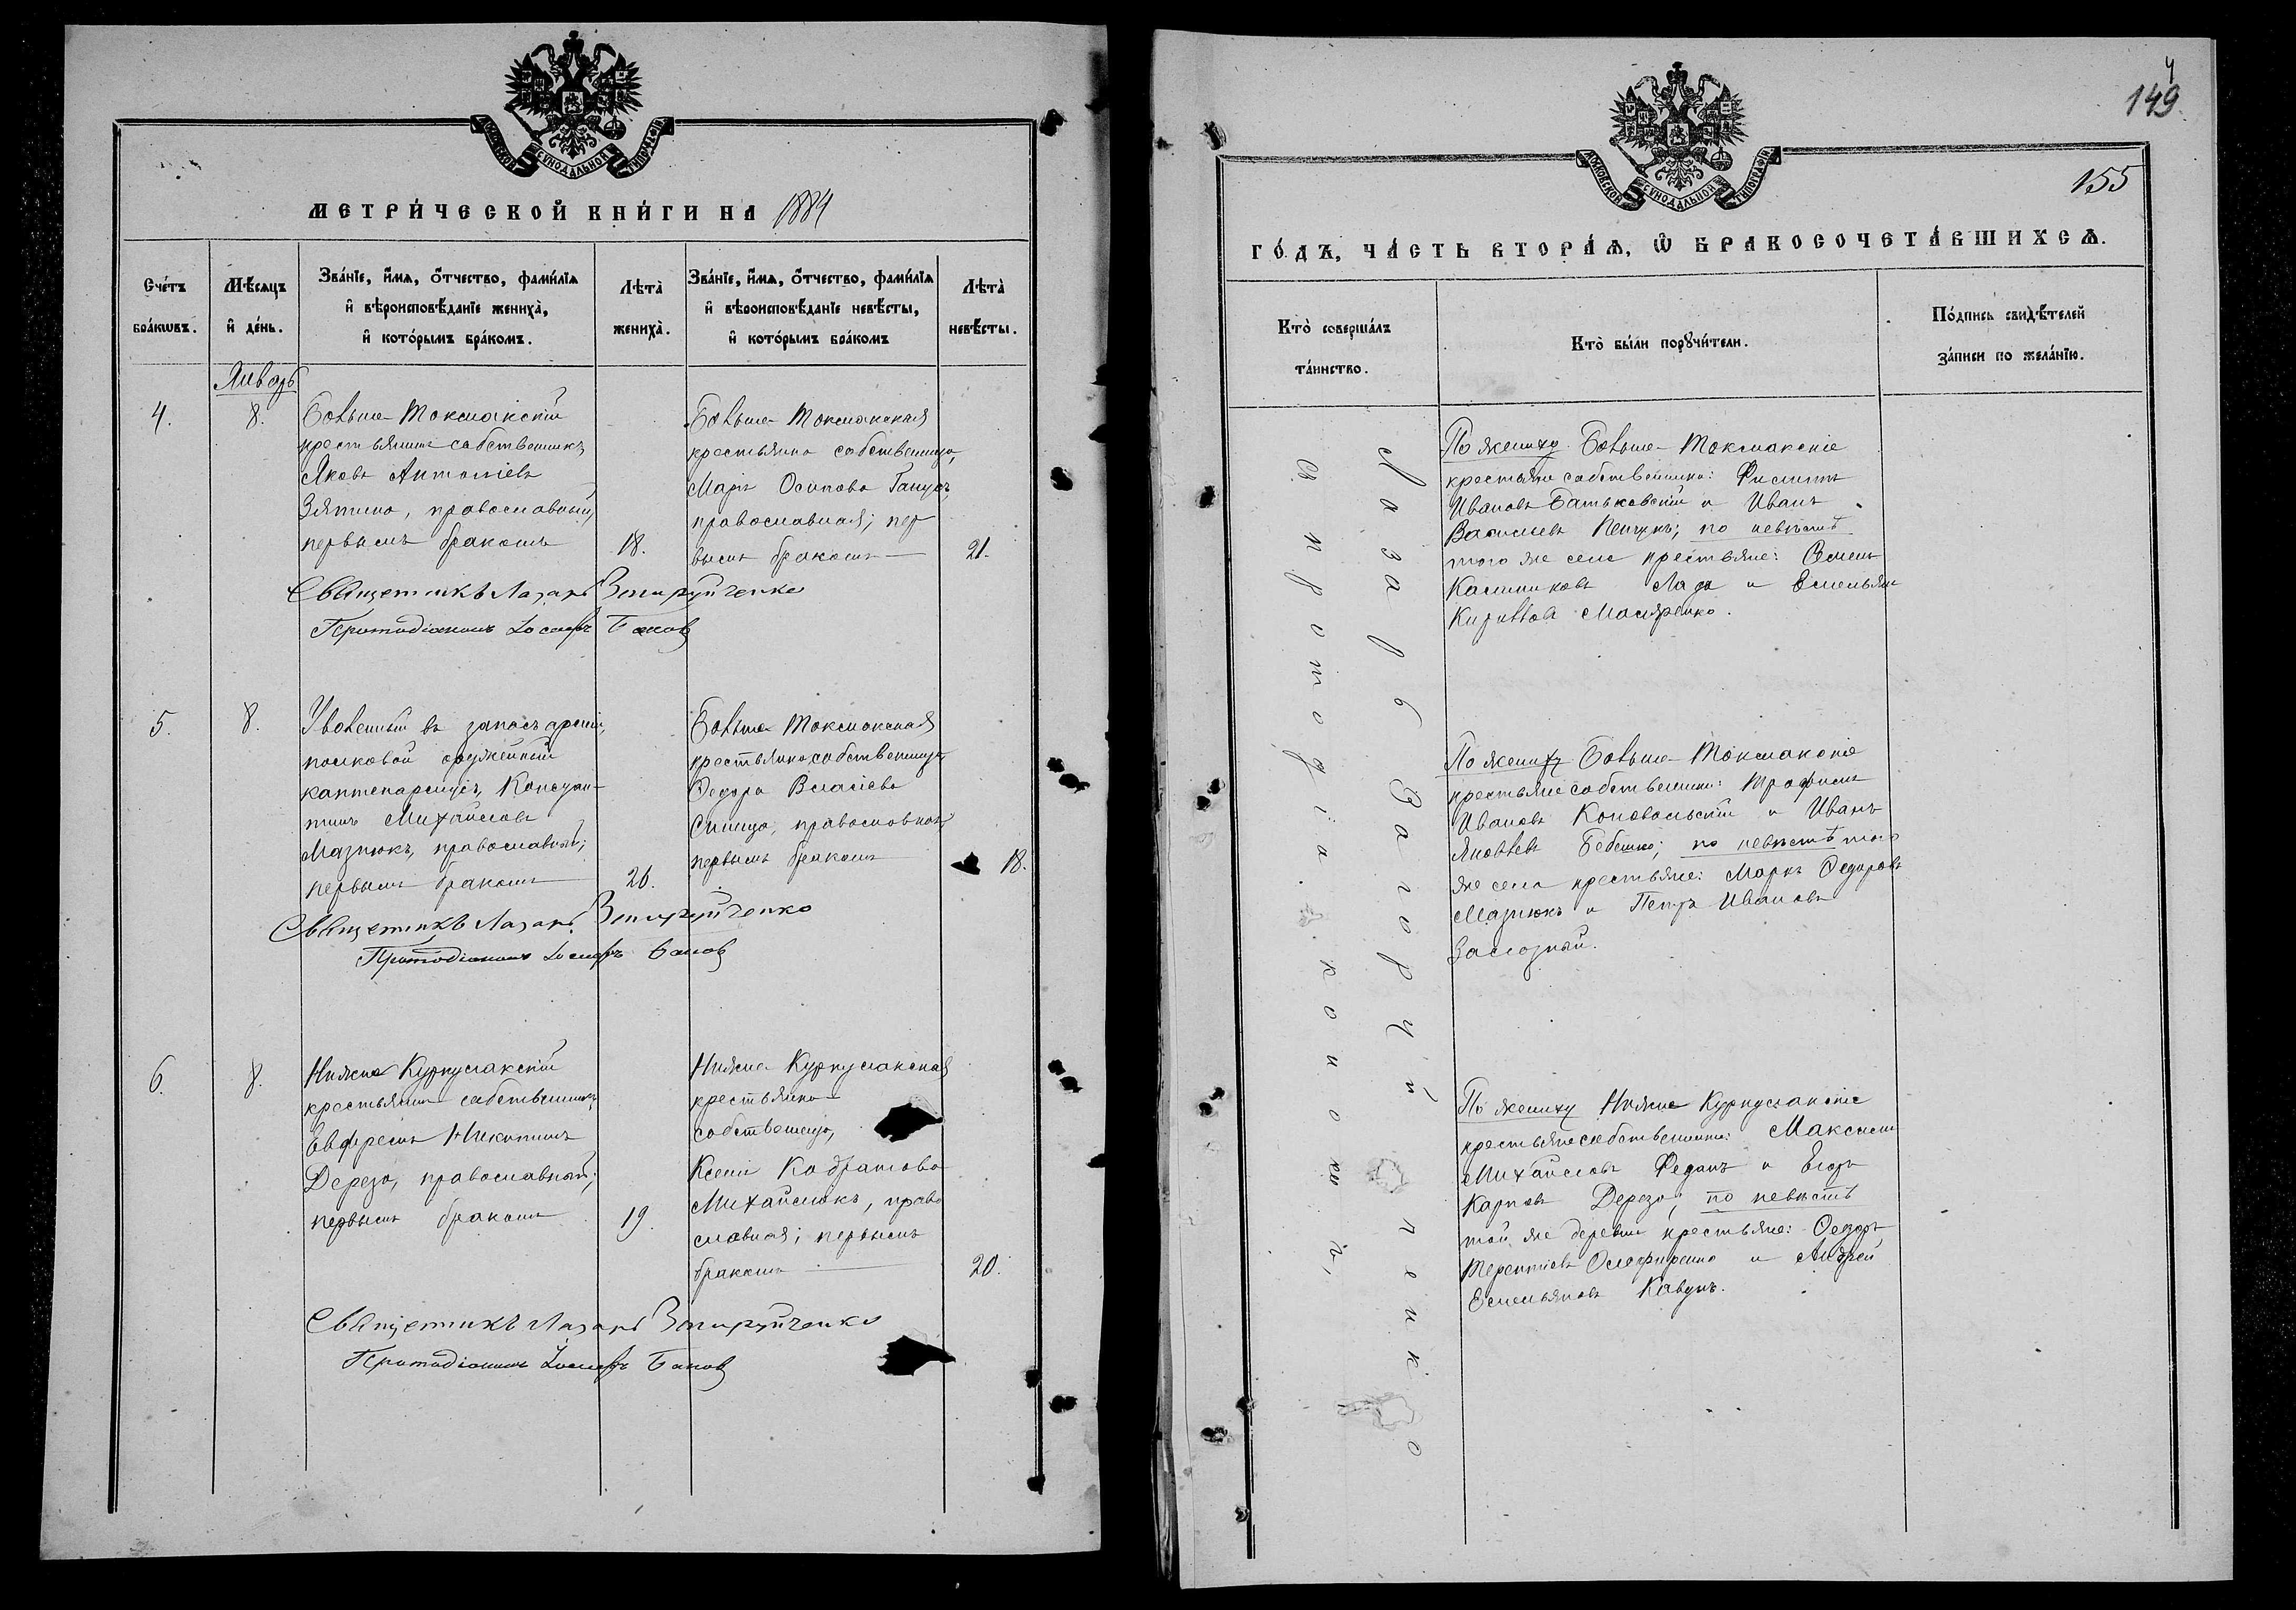 МОСКОВСКОЙ СѴНОДАЛЬНОЙ ТИПОГРАФІИ
МЕТРИ́ЧЕСКОЙ КНИ́ГИ НА 1884
Сче́тъ бра́кωвъ.
Мѣ́сяцъ и҆ де́нь.
Зва́нїе, и҆́мѧ, ѻ҆́тчество, фамилїѧ и҆ вѣроисповѣ́данїе жениха̀, и҆ кото́рымъ бра́комъ.
Лѣта̀ жениха̀.
Зва́нїе, и҆́мѧ, ѻ҆́тчество, фамилїѧ и҆ вѣроисповѣ́данїе невѣ́сты, и҆ кото́рымъ бра́комъ
Лѣта̀ невѣ́сты.
Январь
4.
8.
Больше-Токмакскій
крестьянинъ собственникъ
Яковъ Антоніевъ
Зятина, православный,
первымъ бракомъ
18.
Больше-Токмакская
крестьянка собственница,
Марѳа Осипова
православная; пер
вымъ бракомъ
21.
Священникъ Лазарь
Протодіаконъ Іосифъ Баковъ
5.
8.
Уволенный въ запасъ арміи,
полковой оружейный
каптенармусъ, Констан-
тинъ Михайловъ
Мазнюкъ, православный;
первымъ бракомъ
26.
Больше-Токмакская
крестьянка собственница
Ѳедора Власіева
Синица, православная,
первымъ бракомъ
18.
Священникъ Лазарь
Протодіаконъ Іосифъ Баковъ
6.
8.
Нижне Куркулакскій
крестьянинъ собственникъ,
Евфремъ Никитинъ
Дереза, православный;
первымъ бракомъ
19.
Нижне-Куркулакская
крестьянка
собственница,
Ксенія Кодратова
Михайлюкъ, право
славная; первымъ
бракомъ
20.
Священникъ Лазарь
Протодіаконъ Іосифъ Баковъ
4
149
155
МОСКОВСКОЙ СѴНОДАЛЬНОЙ ТИПОГРАФІИ
ГО́ДЪ, ЧА́СТЬ ВТОРА́Ѧ, Ѡ҆ БРАКОСОЧЕТА́ВШИХСѦ.
Кто̀ соверша́лъ та́инство.
Кто̀ бы́ли порꙋчи́тели.
По́дпись свидѣ́телей за́писи по жела́нїю.
Лазарь
съ протодіакономъ
По жениху Больше-Токмакскіе
крестьяне собственники: Филиппъ
Ивановъ Батьковскій и Иванъ
Васильевъ; по невѣстѣ
того же села крестьяне: Семенъ
Калинниковъ Лада и Емельянъ
Кириловъ
По жениху Больше-Токмакскіе
крестьяне собственники: Трофимъ
Ивановъ Коновальскій и Иванъ
Яковлевъ Бебешко; по невѣстѣ того
же села крестьяне: Маркъ Ѳедоровъ
Мазнюкъ и Петръ Ивановъ
По жениху Нижне Куркулакскіе
крестьяне собственники: Максимъ
Михайловъ Феданъ и Егоръ
Карповъ Дереза; по невѣстѣ
той же деревни крестьяне: Ѳедоръ
Терентіевъ Олефиренко и Андрей
Емельяновъ Кавунъ.